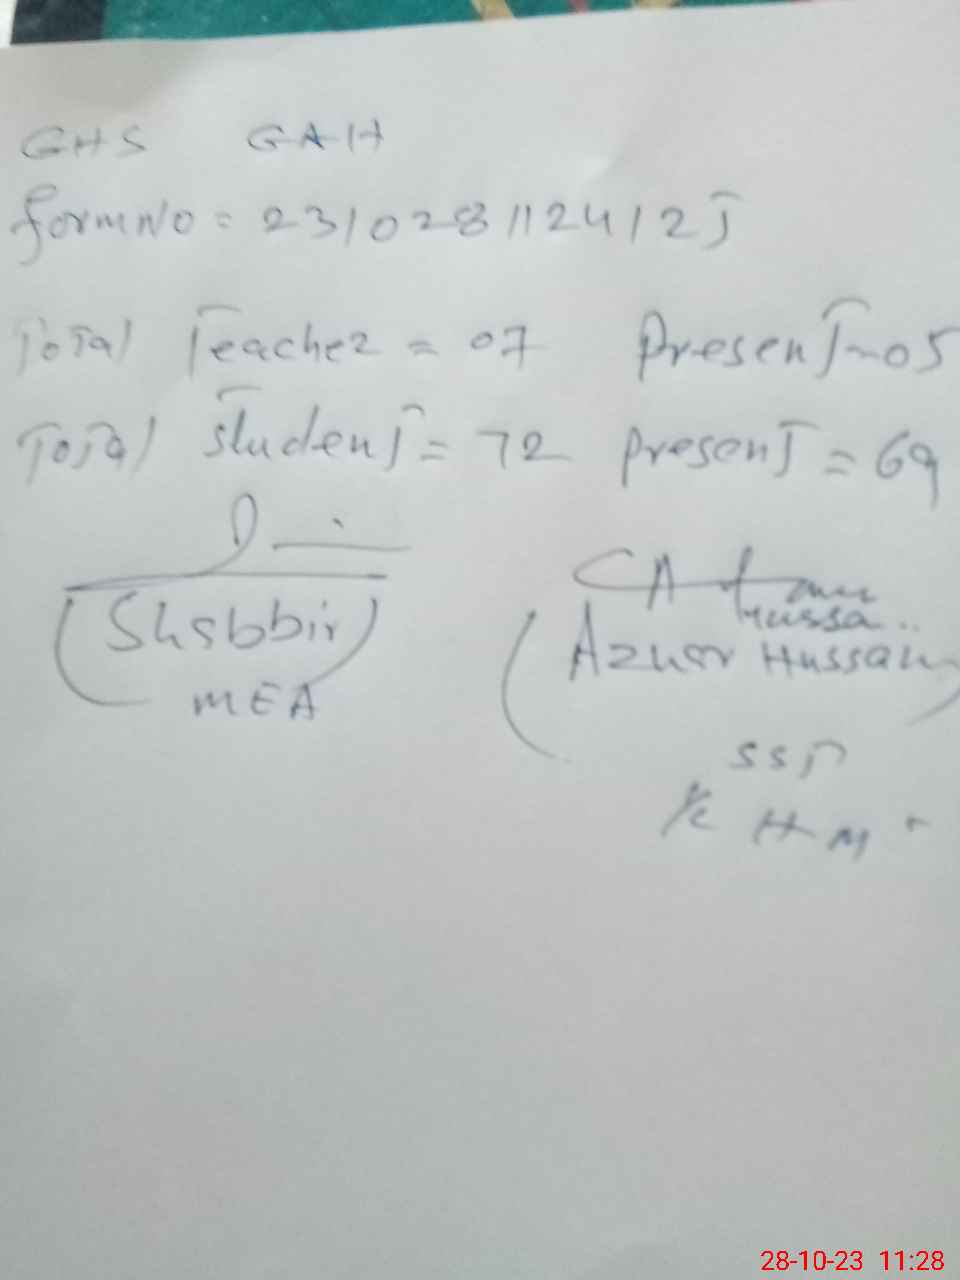 GHS GAH
form No = 2310281124125
Total Teacher = 07 Present = 05
Total Student = 72 Present = 69
(Shabbir)
MEA
Hussa..
(Azhar Hussain)
SST
I/c HM
28-10-23 11:28